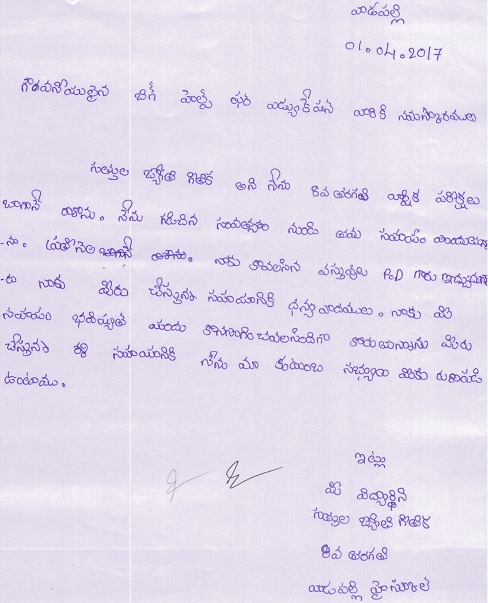 వాడపల్లి
01.04.2017
గౌరవనీయులైన బిగ్ హెల్ప్ ఫర్ ఎడ్యుకేషన్ వారికి నమస్కారములు
సత్తుల జ్యోతి గీతిక అని నేను 8వ తరగతి వార్షిక పరీక్షలు
బాగానే రాశాను. నేను గడిచిన సంవత్సరం నుండి ఈమె సహాయం పొందుతున్నా
-ను. ప్రతినెల బాగానే రాశాను. నాకు కావలసిన వస్తువులు POD గారు ఇచ్చుచున్నా
-రు నాకు మీరు చేస్తున్న సహాయానికి ధన్యవాదములు. నాకు మీ
సహాయం భవిష్యత్ యందు కొనసాగించవలసిందిగా కోరుచున్నాను మీరు
చేస్తున్న ఈ సహాయానికి నేను మా కుటుంబ సభ్యులు మీకు రుణపడి
ఉంటాము.
ఇట్లు
మీ విద్యార్థిని
సత్తుల జ్యోతి గీతిక
8వ తరగతి
వాడపల్లి హైస్కూల్